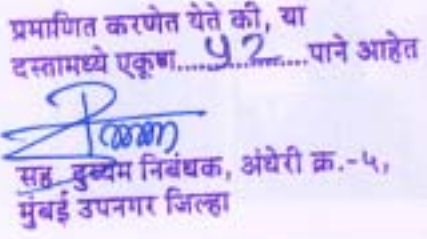 प्रमाणित करणेत येते की, या
दस्तामध्ये एकूण.....५२.....पाने आहेत
सह दुय्यम निबंधक, अंधेरी क्र.-५,
मुंबई उपनगर जिल्हा